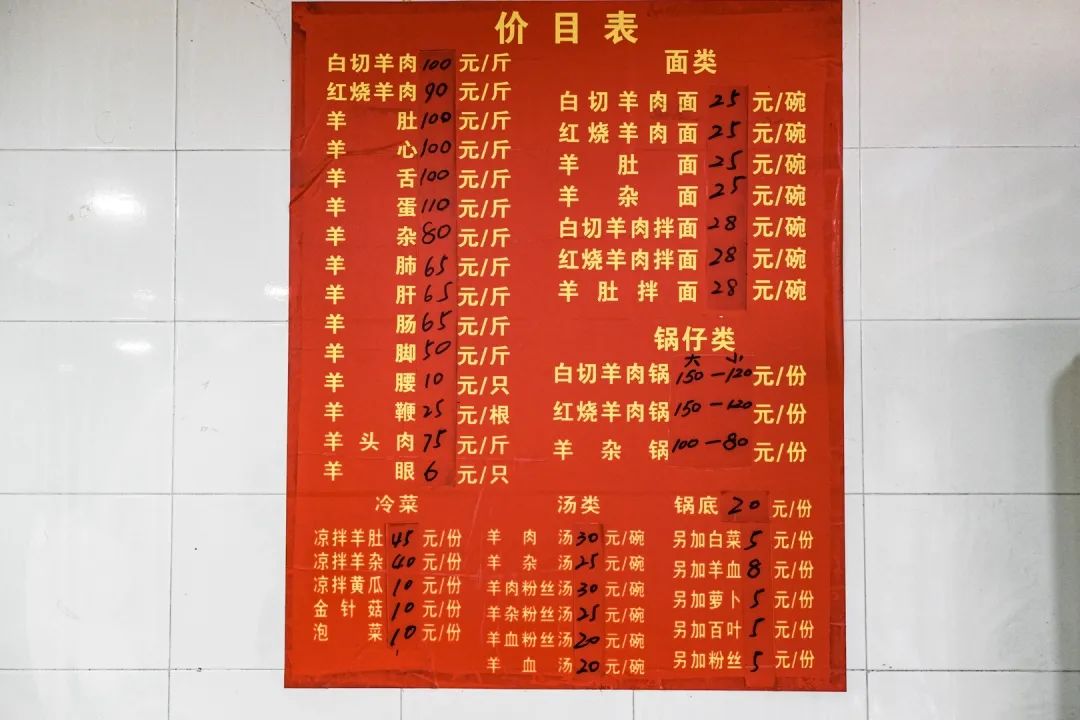 价目表
白切羊肉 100 元/斤
红烧羊肉 90 元/斤
羊肚 100 元/斤
羊心 100 元/斤
羊舌 100 元/斤
羊蛋 110 元/斤
羊杂 80 元/斤
羊肺 65 元/斤
羊肝 65 元/斤
羊肠 65 元/斤
羊脚 50 元/斤
羊腰 10 元/只
羊鞭 25 元/根
羊头肉 75 元/斤
羊眼 6 元/只
面类
白切羊肉面 25 元/碗
红烧羊肉面 25 元/碗
羊肚面 25 元/碗
羊杂面 25 元/碗
白切羊肉拌面 28 元/碗
红烧羊肉拌面 28 元/碗
羊肚拌面 28 元/碗
锅仔类
大 小
白切羊肉锅 150-120 元/份
红烧羊肉锅 150-120 元/份
羊杂锅 100-80 元/份
冷菜
凉拌羊肚 45 元/份
凉拌羊杂 40 元/份
凉拌黄瓜 10 元/份
金针菇 10 元/份
泡菜 10 元/份
汤类
羊肉汤 30 元/碗
羊杂汤 25 元/碗
羊肉粉丝汤 30 元/碗
羊杂粉丝汤 25 元/碗
羊血粉丝汤 20 元/碗
羊血汤 20 元/碗
锅底 20 元/份
另加白菜 5 元/份
另加羊血 8 元/份
另加萝卜 5 元/份
另加百叶 5 元/份
另加粉丝 5 元/份